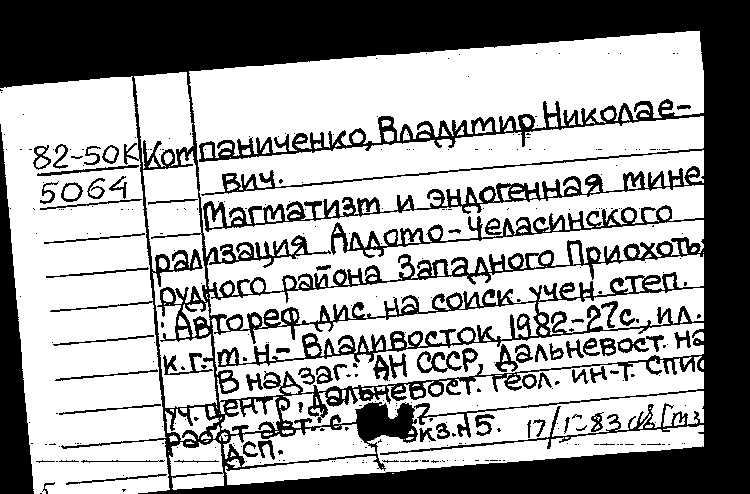 82-50К Компаниченко, Владимир Николае-
5064 вич.
Магматизм и эндогенная мине
рализация Алдомо-Челасинского
рудного района Западного Приохоть
: Автореф. дис. на соиск. учен. степ.
к. г.-м. н. - Владивосток, 1982.-27с., ил.
В надзаг.: АН СССР, Дальневост. на
уч. центр, Дальневост. геол. ин-т. Спис
работ авт.: с.
экз. №5. 17/I-83
ДСП.